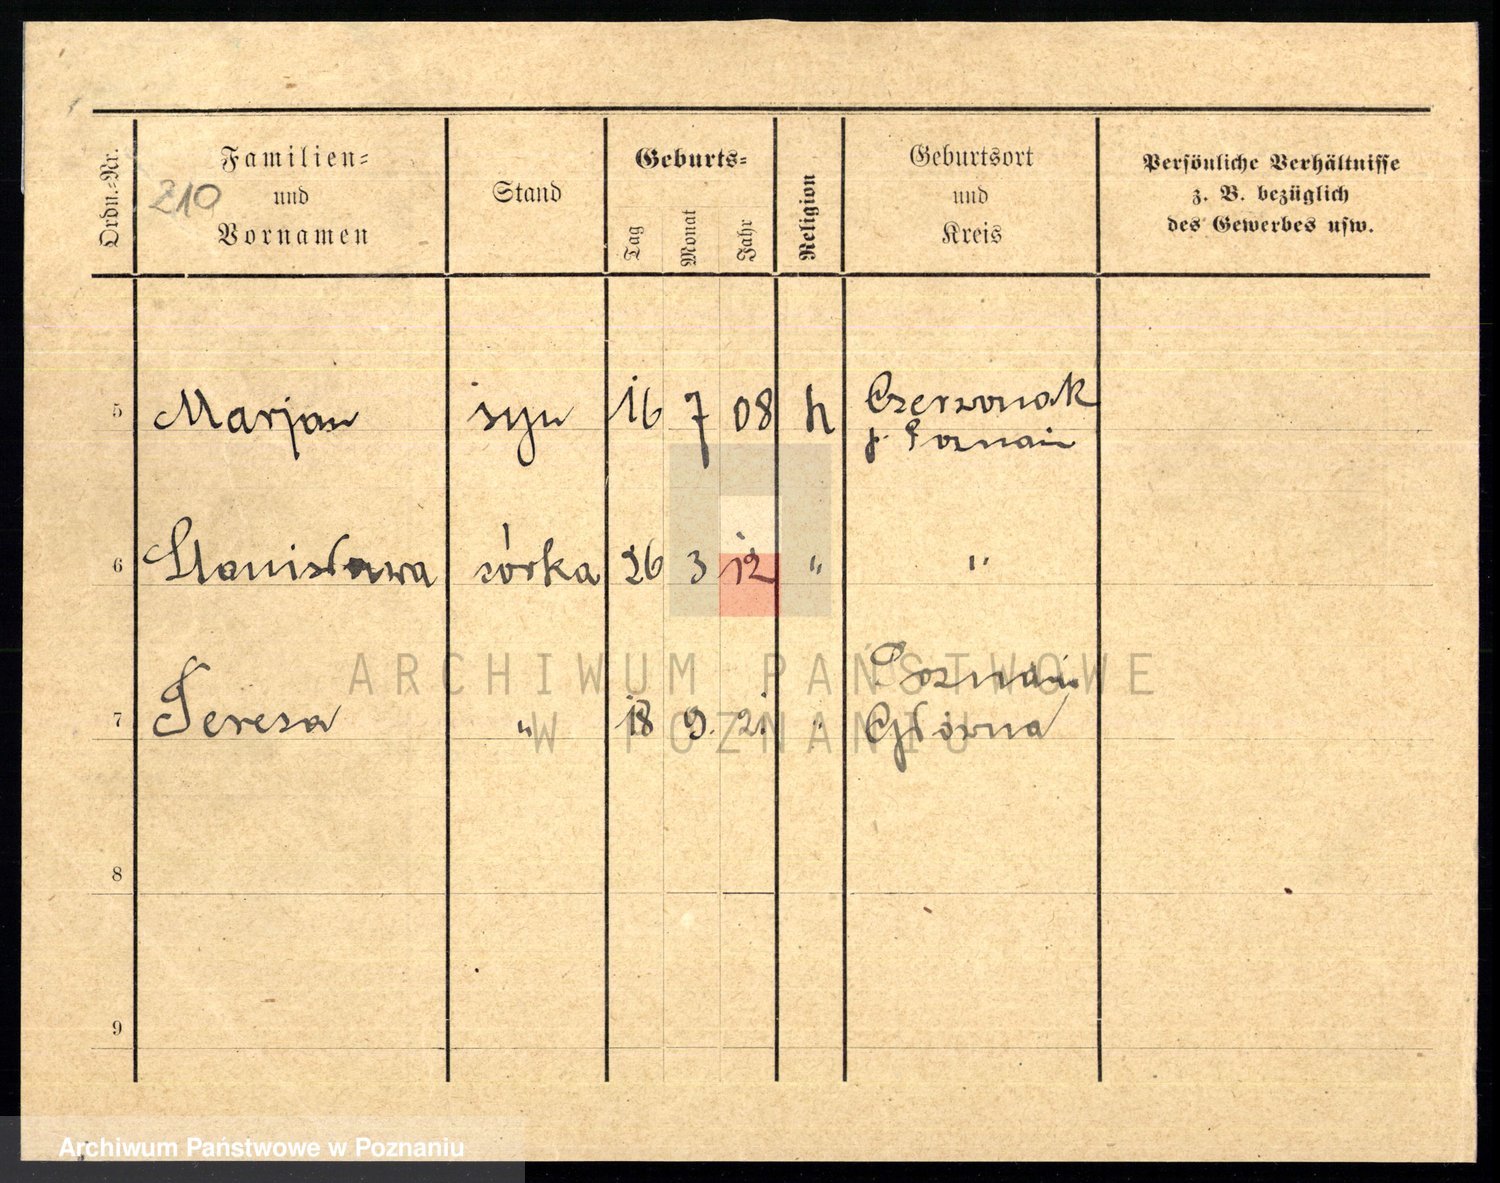 Ordn.-Nr.
Familien-
und
Vornamen
210
Stand
Geburts-
Tag
Monat
Jahr
Religion
Geburtsort
und
Kreis
Persönliche Verhältnisse
z. B. bezüglich
des Gewerbes usw.
5 Marjan syn 16 7 08 Czerwonak
p. Poznań
6 Stanisława córka 26 3 12 " "
7 Teresa " 18 9. 21 " Poznań
Główna
8
9
ARCHIWUM PAŃSTWOWE
W POZNANIU
Archiwum Państwowe w Poznaniu